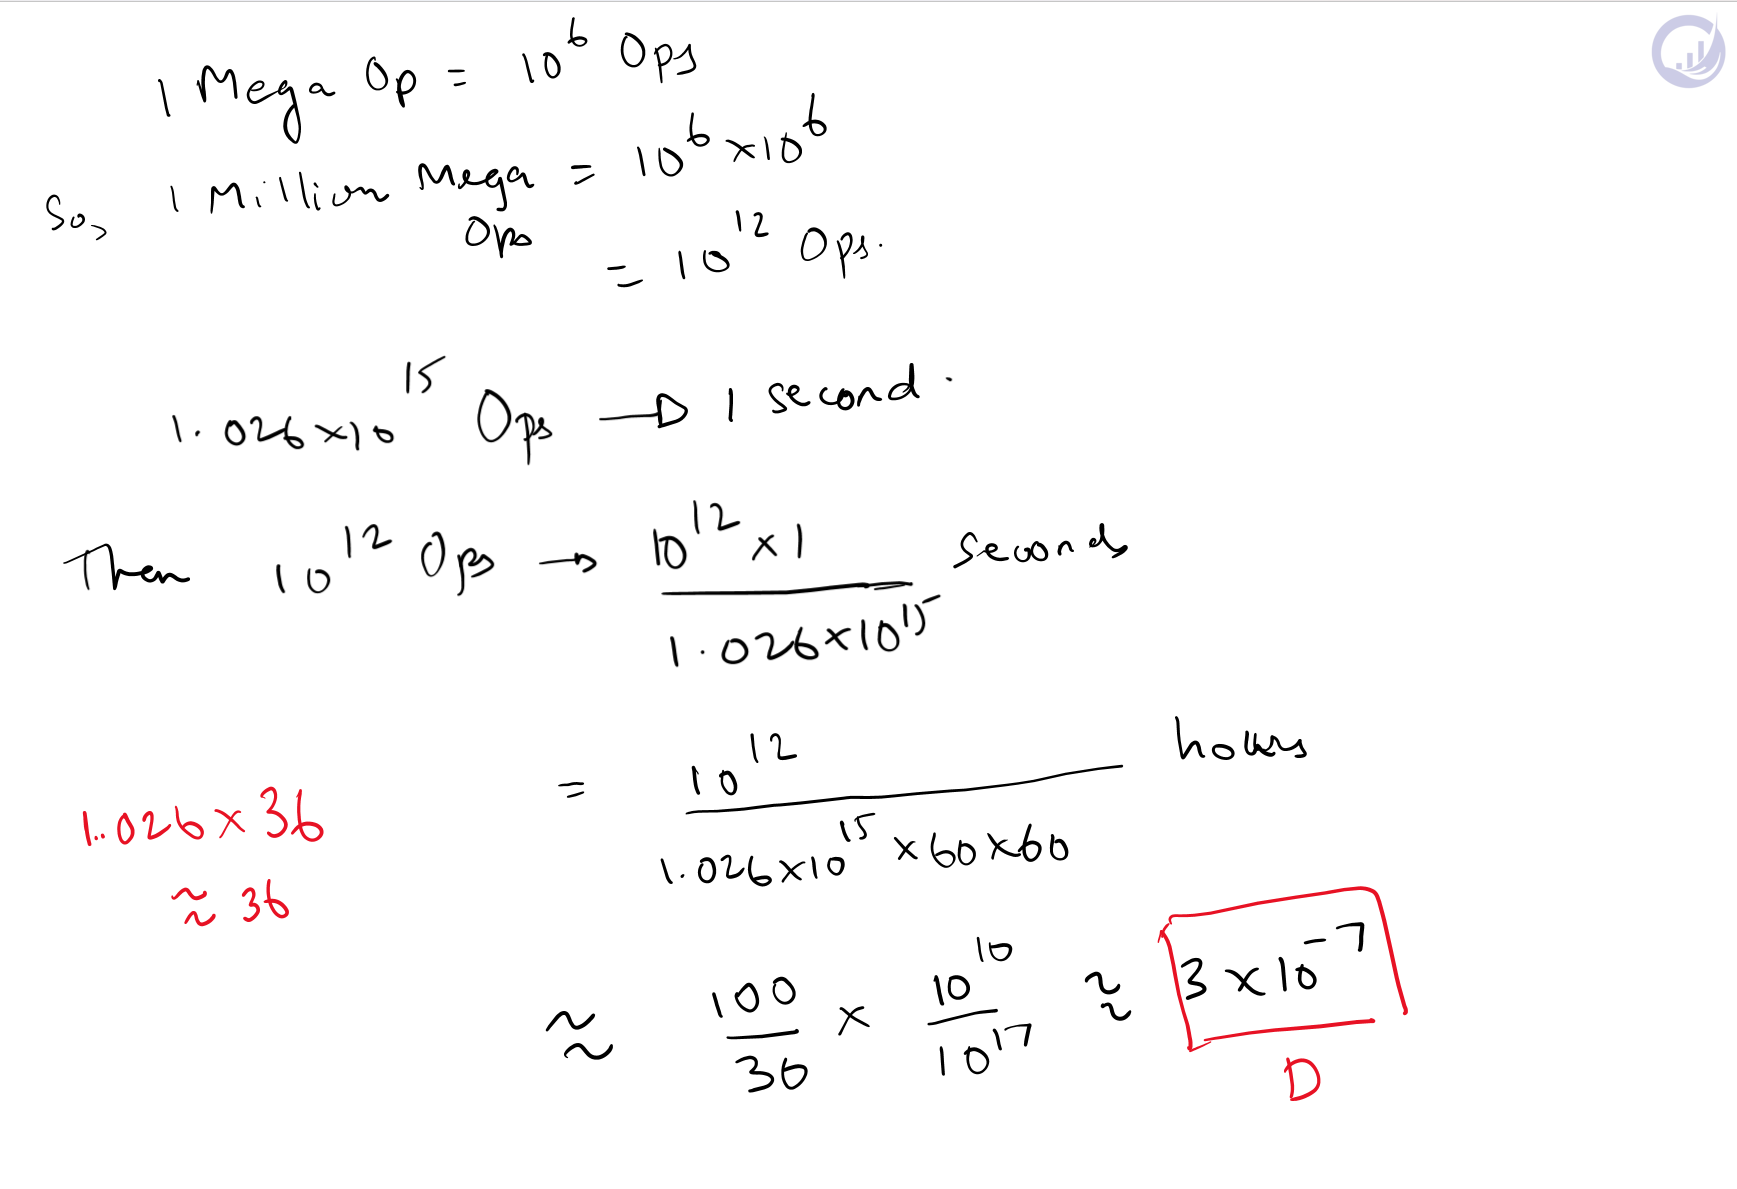 1 Mega Op = 10^6 Ops
So, 1 Million Mega Ops = 10^6 × 10^6
= 10^12 Ops.
1.026 × 10^15 Ops → 1 second.
Then 10^12 Ops → 10^12 × 1 / 1.026 × 10^15 seconds
= 10^12 / 1.026 × 10^15 × 60 × 60 hours
1.026 × 36
≈ 36
≈ 100 / 36 × 10^10 / 10^17 ≈ 3 × 10^-7
D